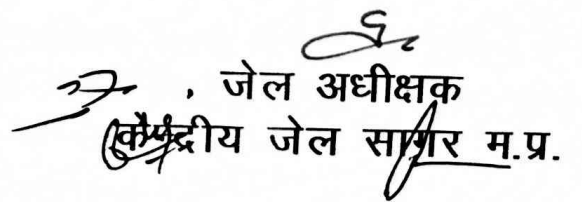 जेल अधीक्षक
केन्द्रीय जेल सागर म.प्र.